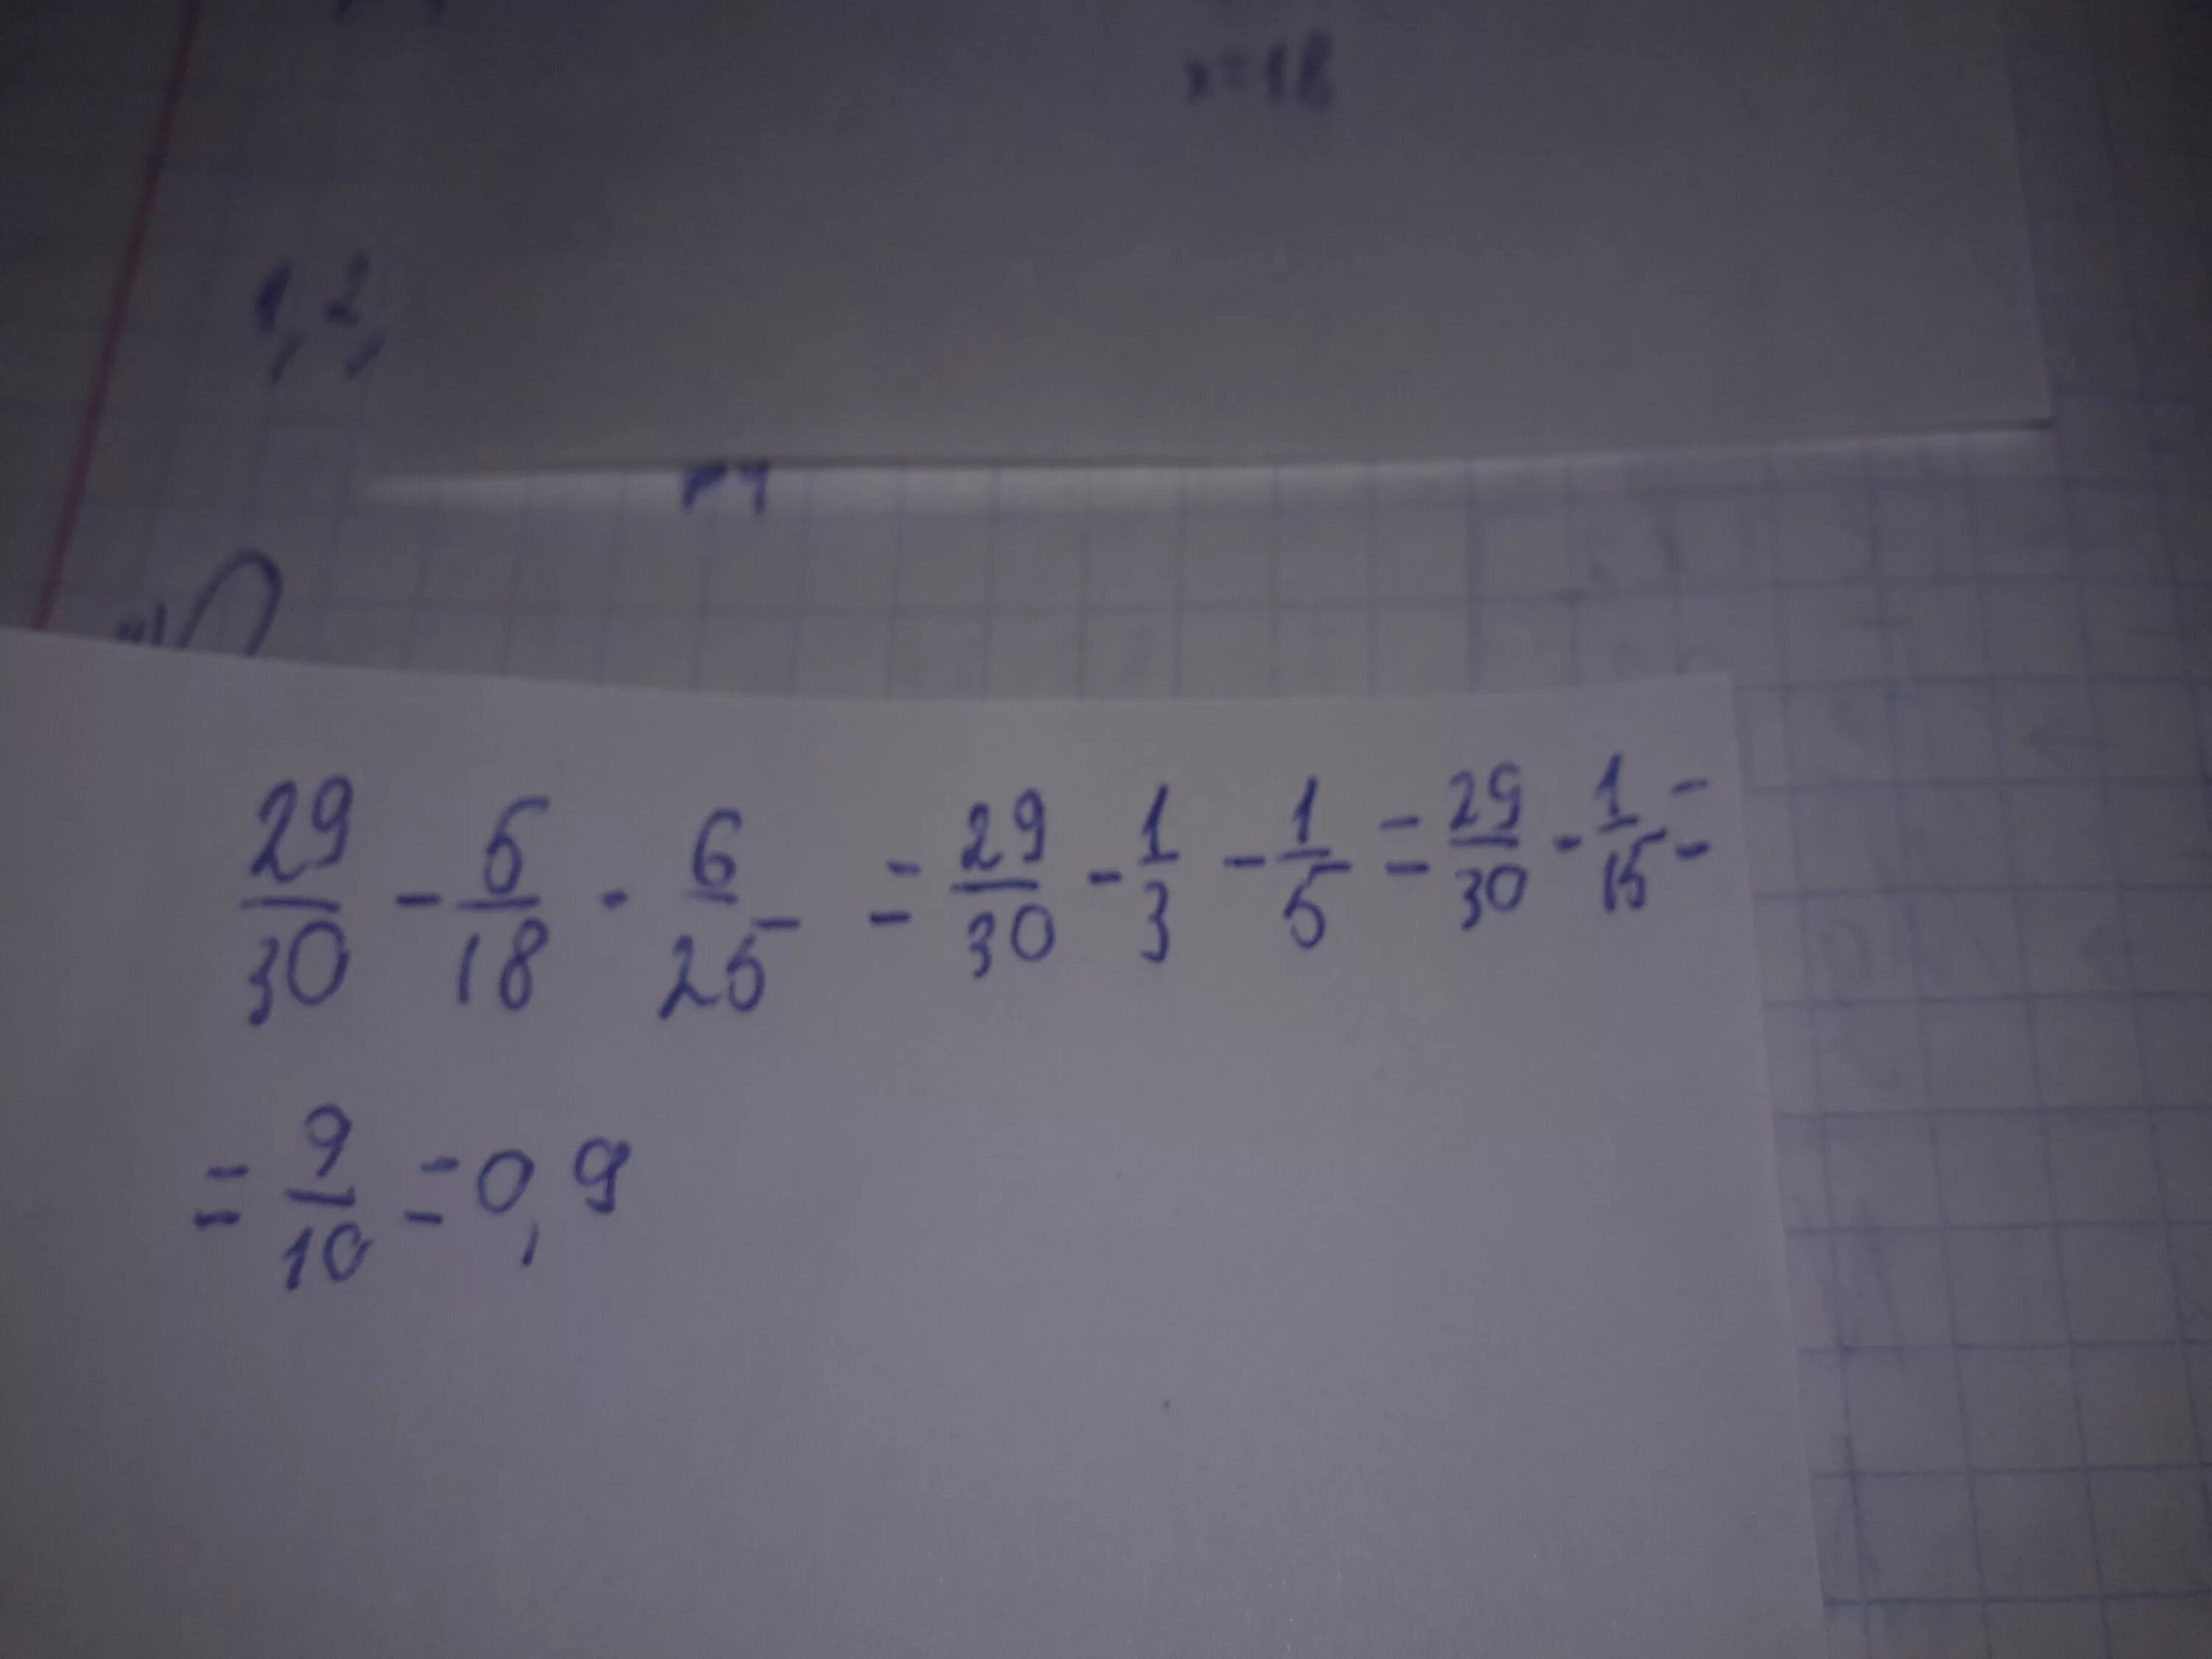 x=18
1, 2,
29/30 - 5/18 · 6/25 = 29/30 - 1/3 - 1/5 = 29/30 - 1/15 =
= 9/10 = 0,9